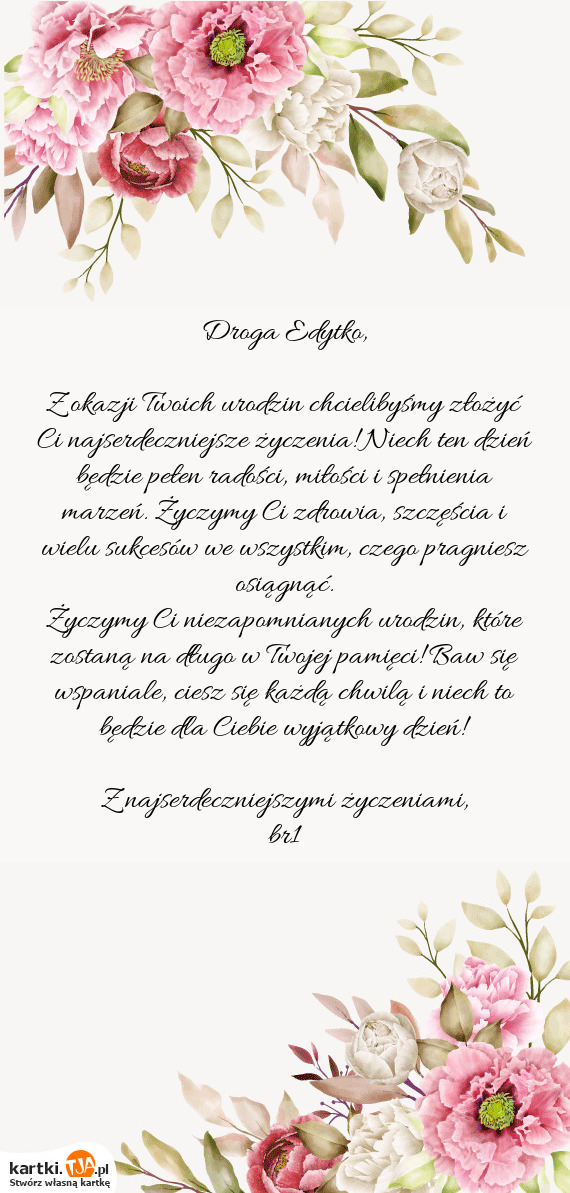 Droga Edytko,
Z okazji Twoich urodzin chcielibyśmy złożyć
Ci najserdeczniejsze życzenia! Niech ten dzień
będzie pełen radości, miłości i spełnienia
marzeń. Życzymy Ci zdrowia, szczęścia i
wielu sukcesów we wszystkim, czego pragniesz
osiągnąć.
Życzymy Ci niezapomnianych urodzin, które
zostaną na długo w Twojej pamięci! Baw się
wspaniale, ciesz się każdą chwilą i niech to
będzie dla Ciebie wyjątkowy dzień!
Z najserdeczniejszymi życzeniami,
br1
kartki.TJA.pl
Stwórz własną kartkę